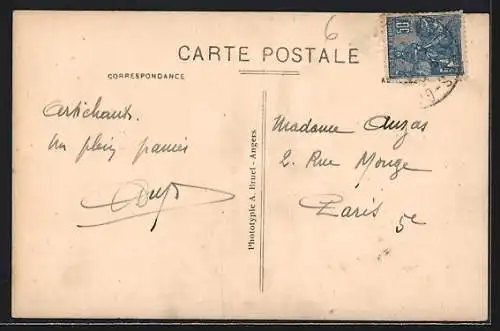 6
CARTE POSTALE
CORRESPONDANCE
Artichauts.
un plein panier
Madame Auzas
2. Rue Monge
Paris 5e
Phototypie A. Bruel - Angers
50